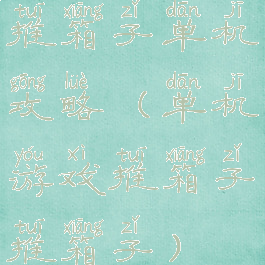 tuī xiāng zǐ dān jī
推箱子单机
gōng lüè dān jī
攻略（单机
yóu xì tuī xiāng zǐ
游戏推箱子
tuī xiāng zǐ
推箱子）